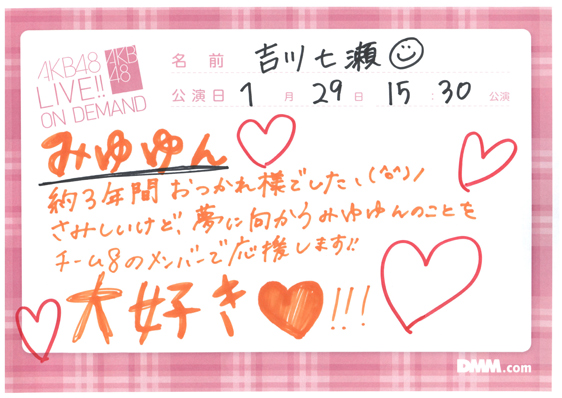 AKB48
LIVE!!
ON DEMAND
AKB
48
名前 吉川七瀬
公演日 1月29日 15:30公演
みゆゆん
約3年間おつかれ様でした、(^o^)/
さみしいけど、夢に向かうみゆゆんのことを
チーム8のメンバーで応援します!!
大好き!!!
DMM.com